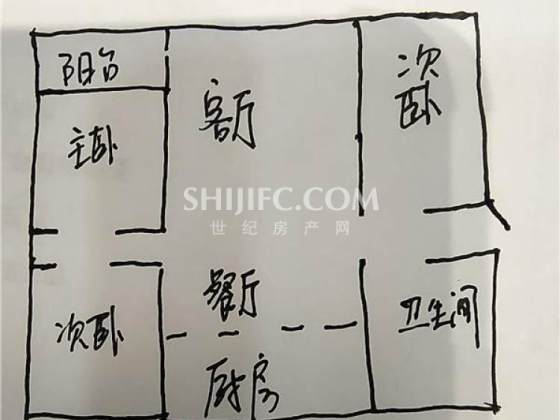 阳台
主卧
客厅
次卧
SHIJIFC.COM
世纪房产网
次卧
餐厅
厨房
卫生间